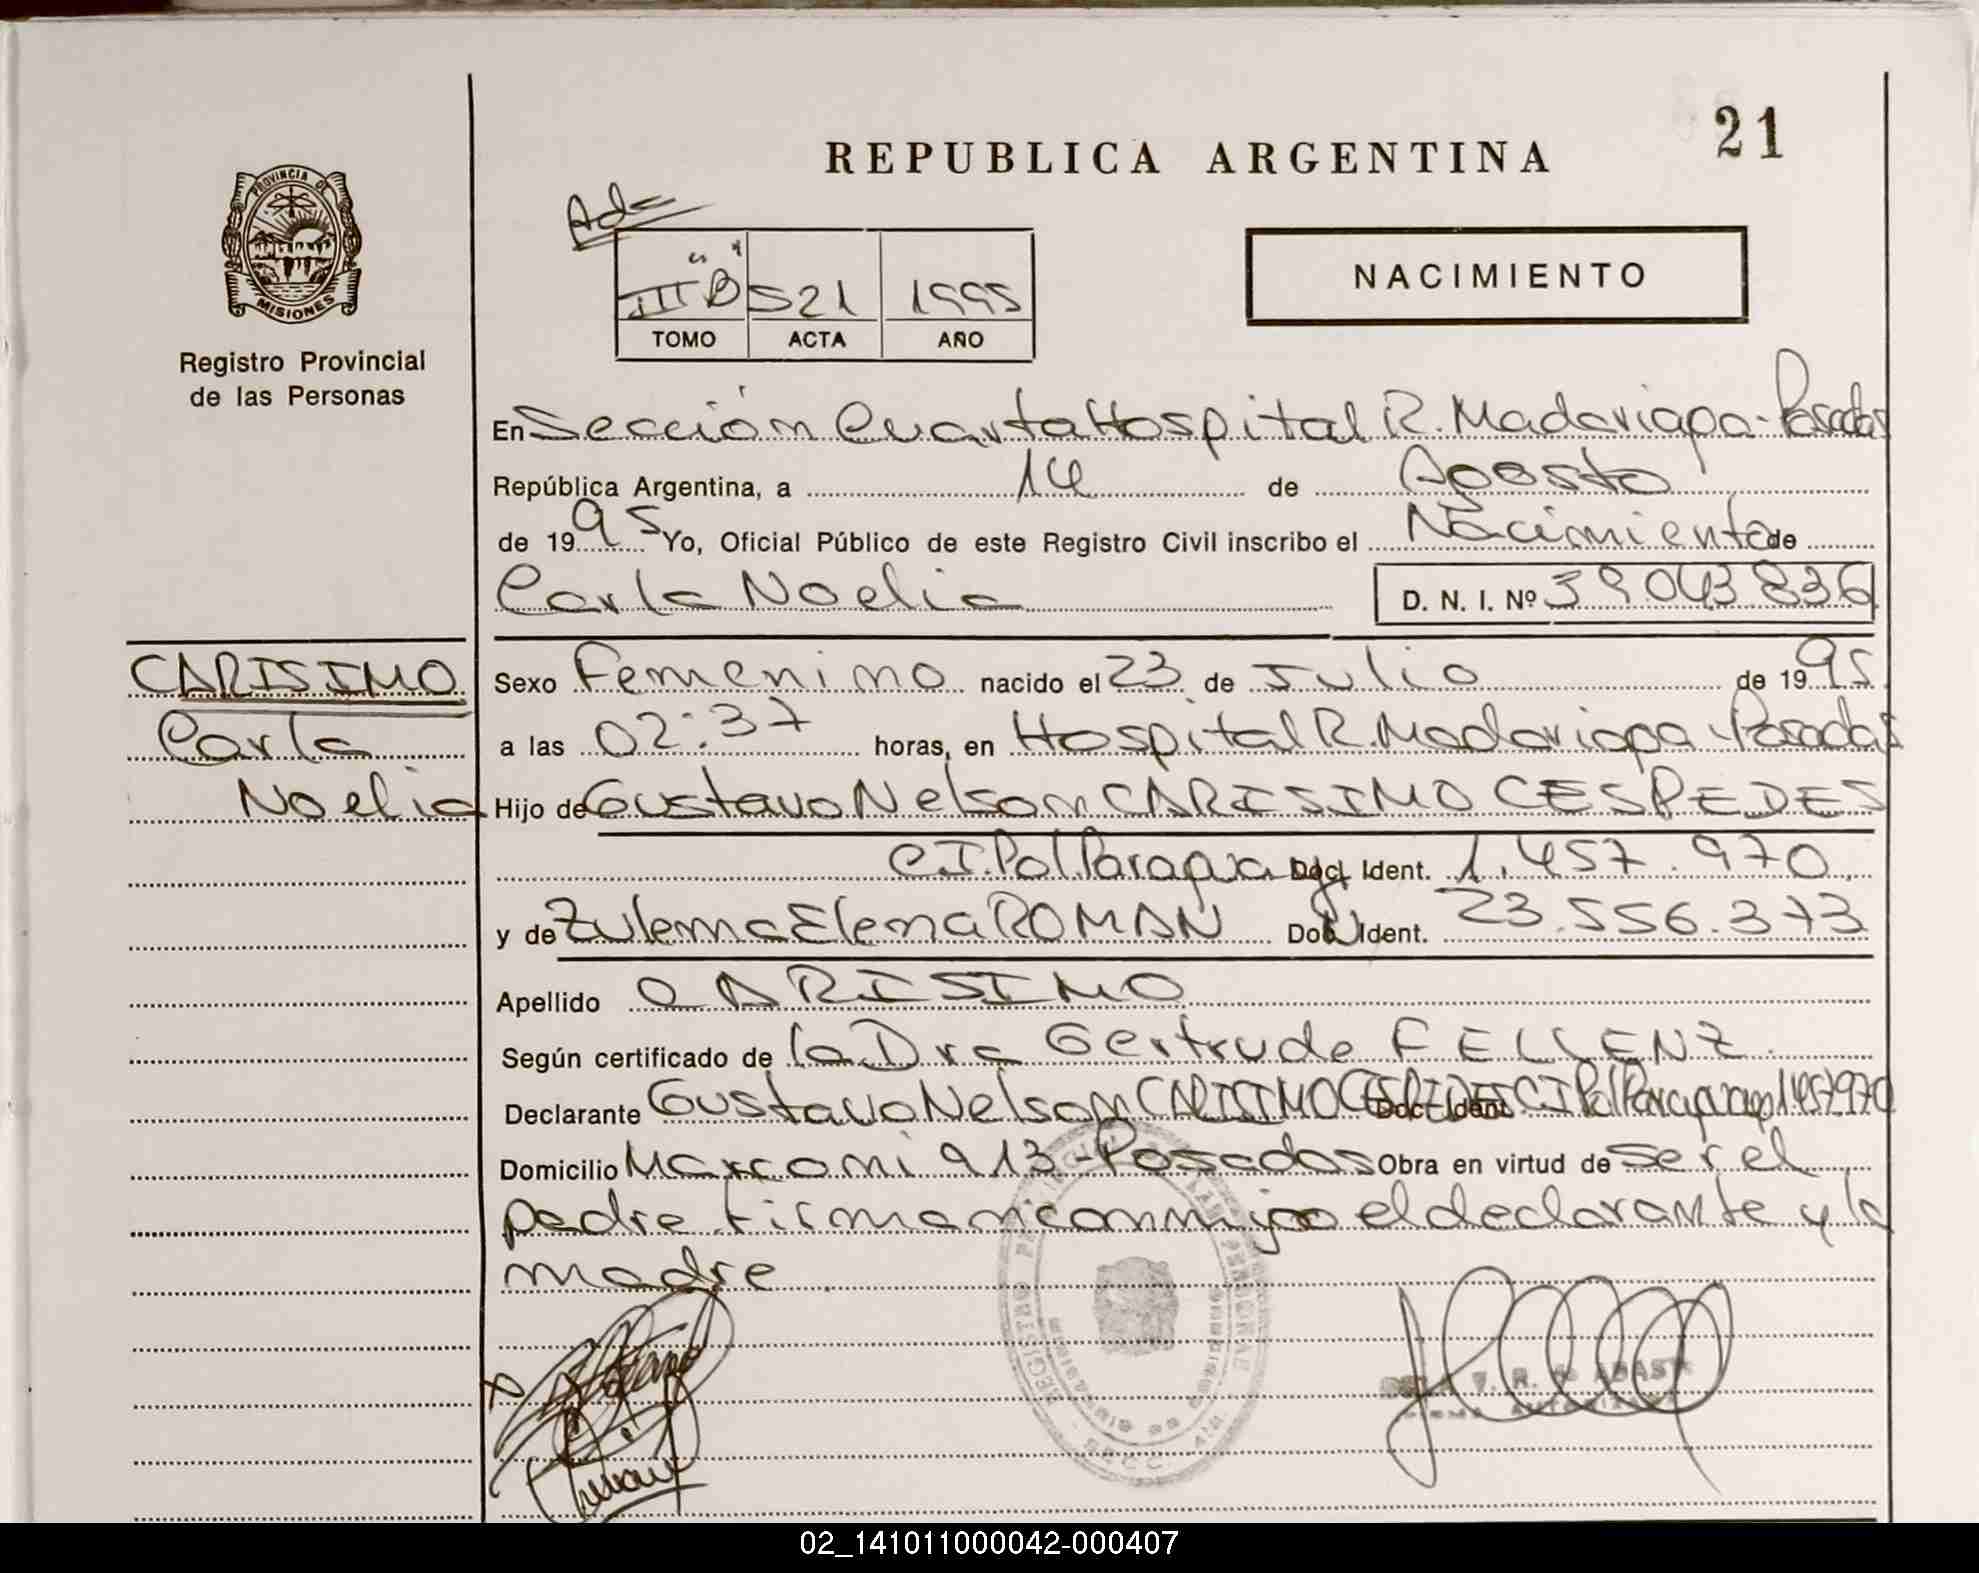 21
REPUBLICA ARGENTINA
PROVINCIA DE
MISIONES
Registro Provincial
de las Personas
Ada
III "B" 521 1995
TOMO ACTA AÑO
NACIMIENTO
En Sección Cuarta Hospital R. Madariaga - Posadas
República Argentina, a 14 de Agosto
de 1995 Yo, Oficial Público de este Registro Civil inscribo el Nacimiento de
Carla Noelia D. N. I. Nº 39043836
CARISIMO
Carla
Noelia
Sexo Femenino nacido el 23 de Julio de 1995
a las 02:37 horas, en Hospital R. Madariaga - Posadas
Hijo de Gustavo Nelson CARISIMO CESPEDES
C.I. Pol. Paraguay Doc. Ident. 1.457.970
y de Zulema Elena ROMAN Doc. Ident. 23.556.373
Apellido CARISIMO
Según certificado de la Dra Gertrude FELLENZ
Declarante Gustavo Nelson CARISIMO CESPEDES Doc. Ident. C I Pol Paraguay 1457970
Domicilio Marconi 913 - Posadas Obra en virtud de ser el
padre. Firman conmigo el declarante y la
madre
REGISTRO PERSONAS
02_141011000042-000407